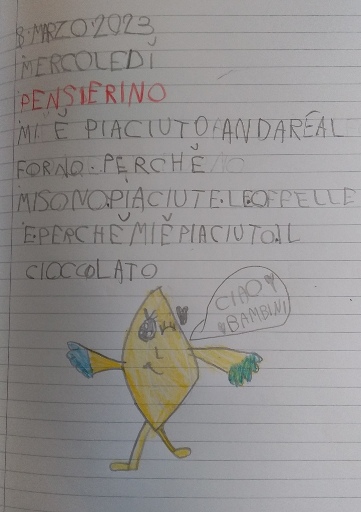 8 MARZO 2023
MERCOLEDÌ
PENSIERINO
MI È PIACIUTO ANDARE AL
FORNO. PERCHÈ
MI SONO PIACIUTE. LE OFFELLE
E PERCHÈ MI È PIACIUTO. IL
CIOCCOLATO
CIAO
BAMBINI